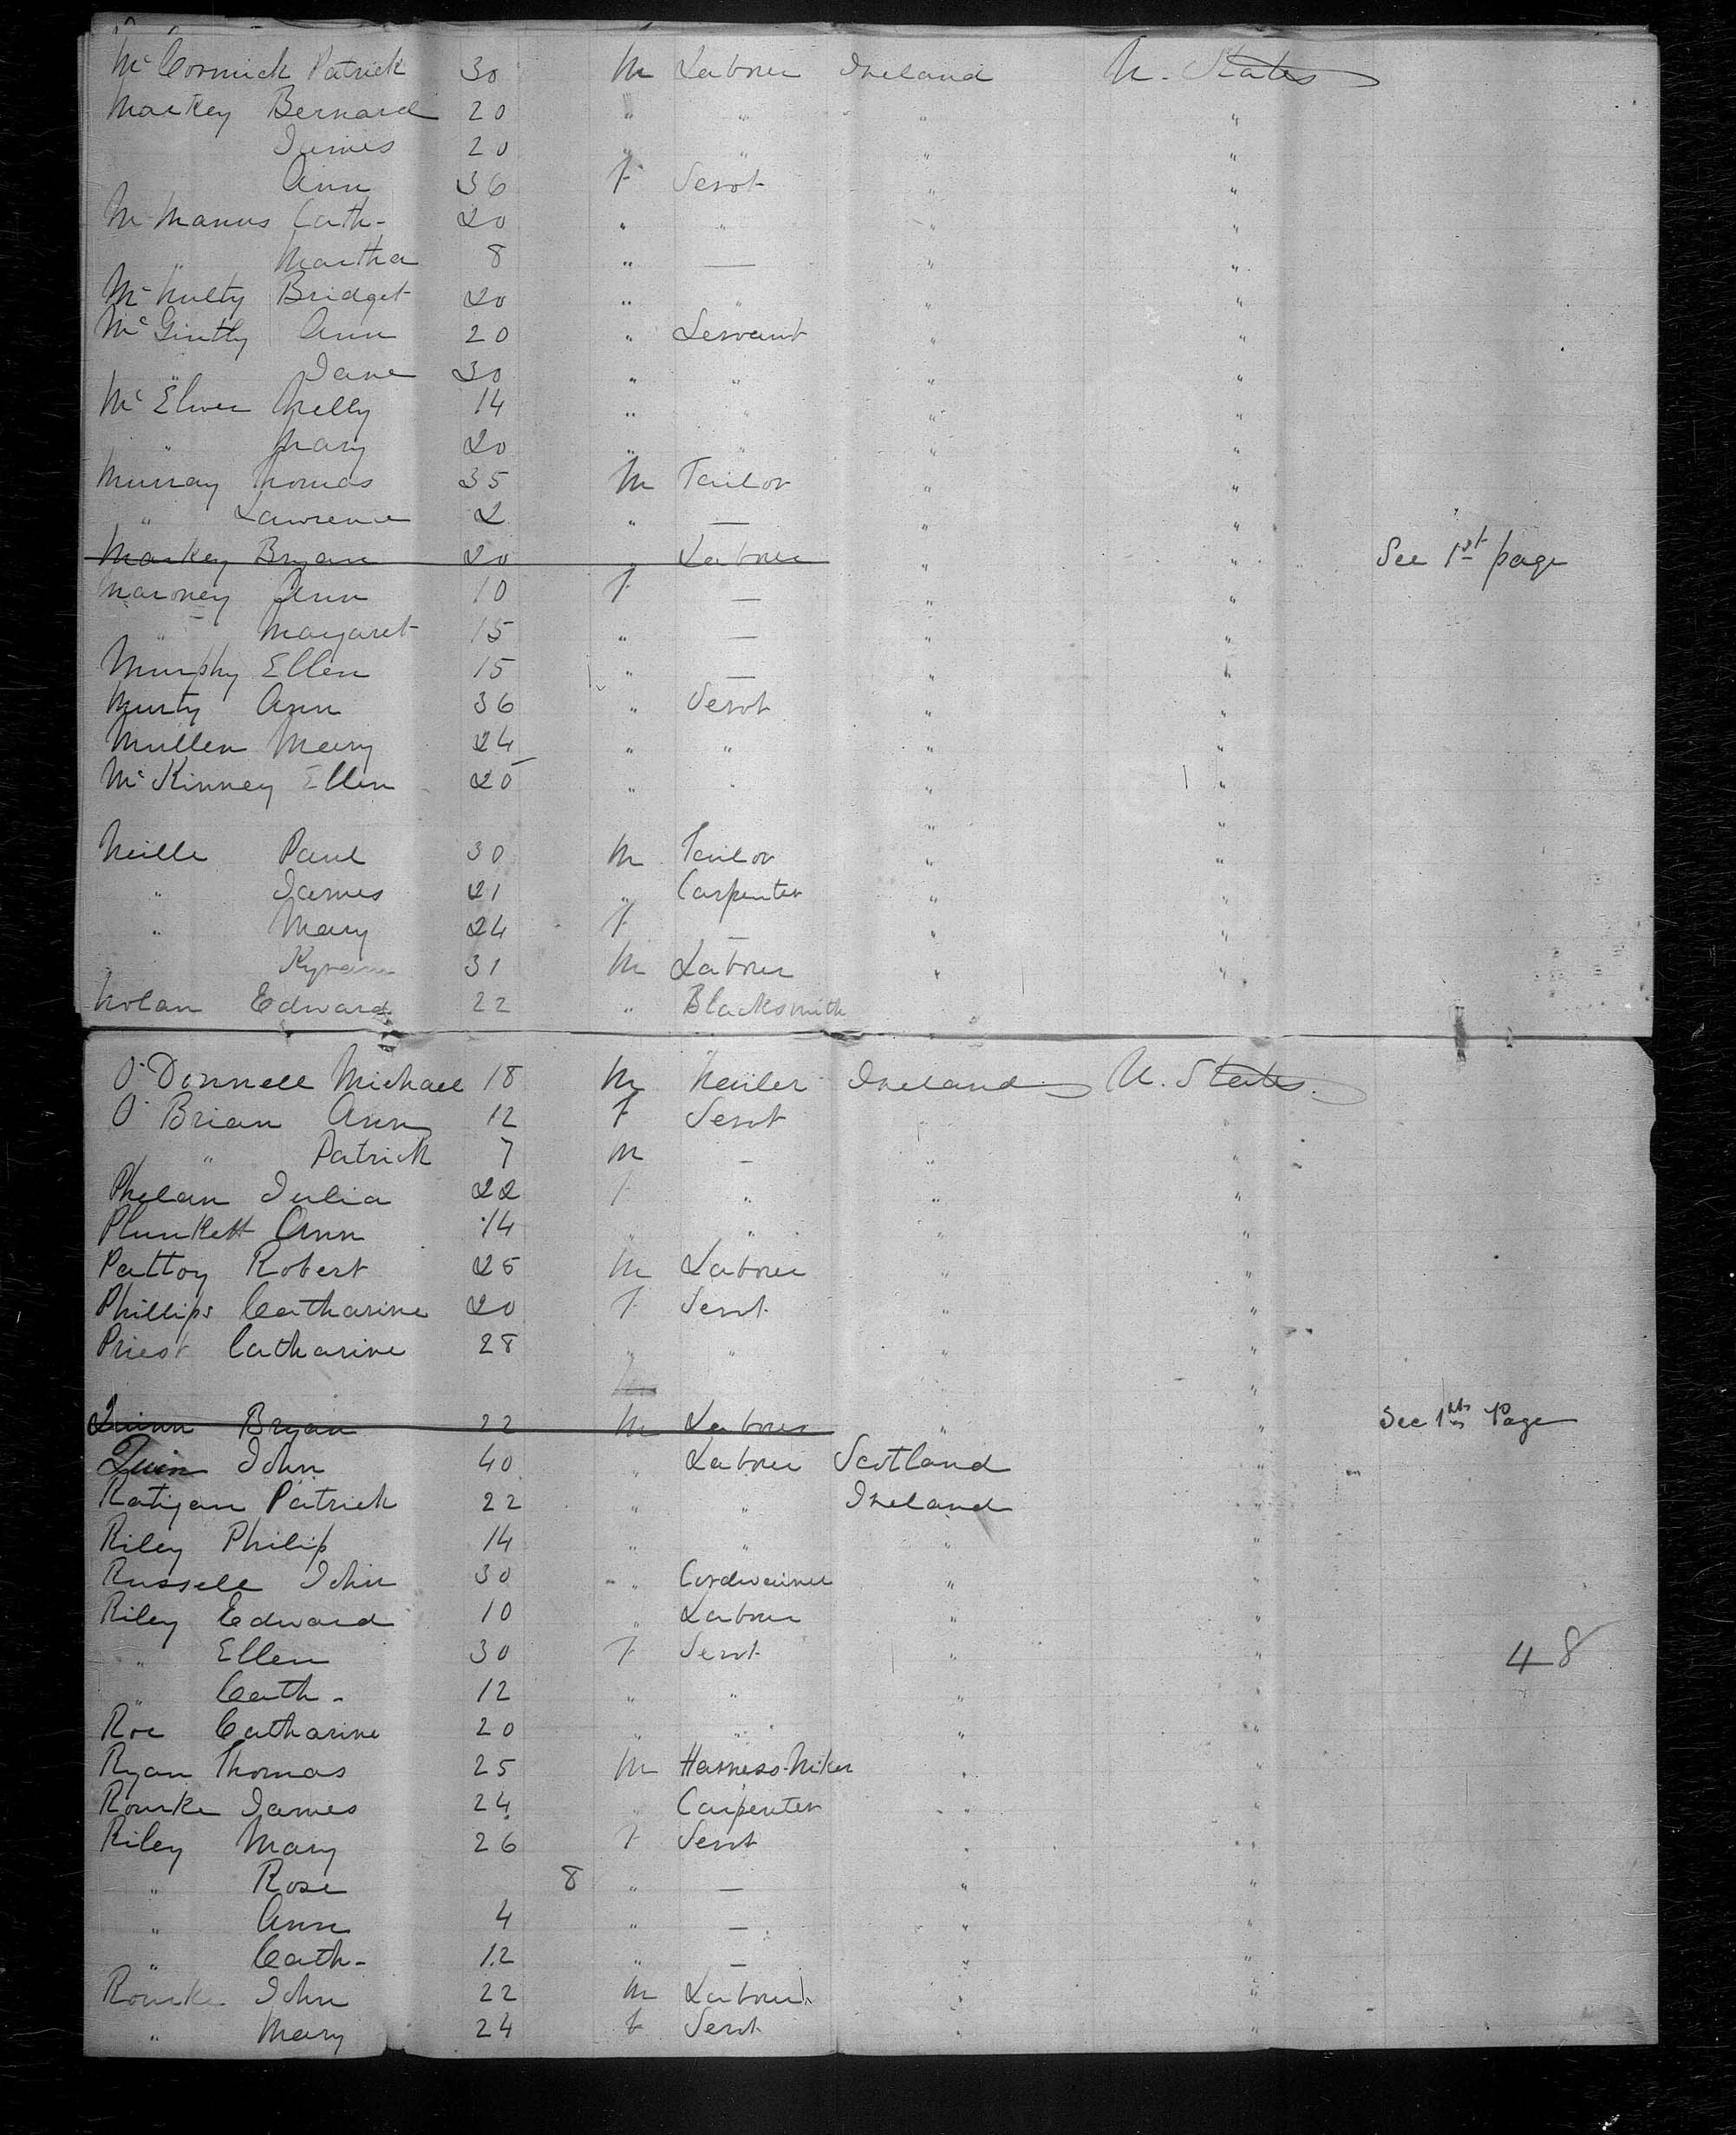 McCormick Patrick 30 M Labrer Ireland U. States
Markey Bernard 20 " " " "
James 20 " " " "
Ann 36 F Servt " "
McManus Cath- 20 " " " "
" Martha 8 " — " "
McNulty Bridget 20 " " " "
McGintly Ann 20 " Servant " "
" Jane 30 " " " "
McElwee Nelly 14 " " " "
" Mary 20 " " " "
Murray Thomas 35 M Tailor " "
" Lawrence 2 " — " "
Markey Bryan 20 " Labrer " " See 1st page
Maroney Ann 10 F — " "
" Margaret 15 " — " "
Murphy Ellen 15 " — " "
Murty Ann 36 " Servt " "
Mullen Mary 24 " " " "
McKinney Ellen 20 " " " "
" "
Neille Paul 30 M Tailor " "
" James 21 " Carpenter " "
" Mary 24 F — " "
" Kyran 31 M Labrer " "
Nolan Edward 22 " Blacksmith
O'Donnell Michael 18 M Nailer Ireland U. States.
O'Brian Ann 12 F Servt " "
" Patrick 7 M — " "
Phelan Julia 22 F " " "
Plunkett Ann 14 " " " "
Pattoy Robert 25 M Labrer " "
Phillips Catharine 20 F Servt " "
Priest Catharine 28 " " " "
"
Quinn Bryan 22 M Labrer " " See 1st Page
Quin John 40 " Labrer Scotland "
Ratigan Patrick 22 " " Ireland "
Riley Philip 14 " " " "
Russell John 30 " Cordwainer " "
Riley Edward 10 " Labrer " "
" Ellen 30 F Servt " " 48
" Cath- 12 " " " "
Roe Catharine 20 " " " "
Ryan Thomas 25 M Harness-Miker " "
Rourke James 24 " Carpenter " "
Riley Mary 26 F Servt " "
" Rose 8 " — " "
" Ann 4 " — " "
" Cath- 12 " — " "
Rourke John 22 M Labrer " "
" Mary 24 F Servt " "